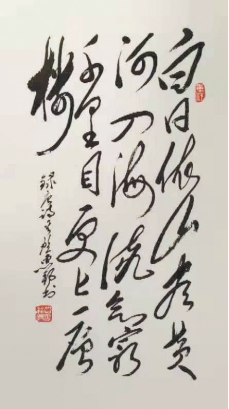 白日依山尽黄
河入海流欲穷
千里目更上一层
楼
録唐诗